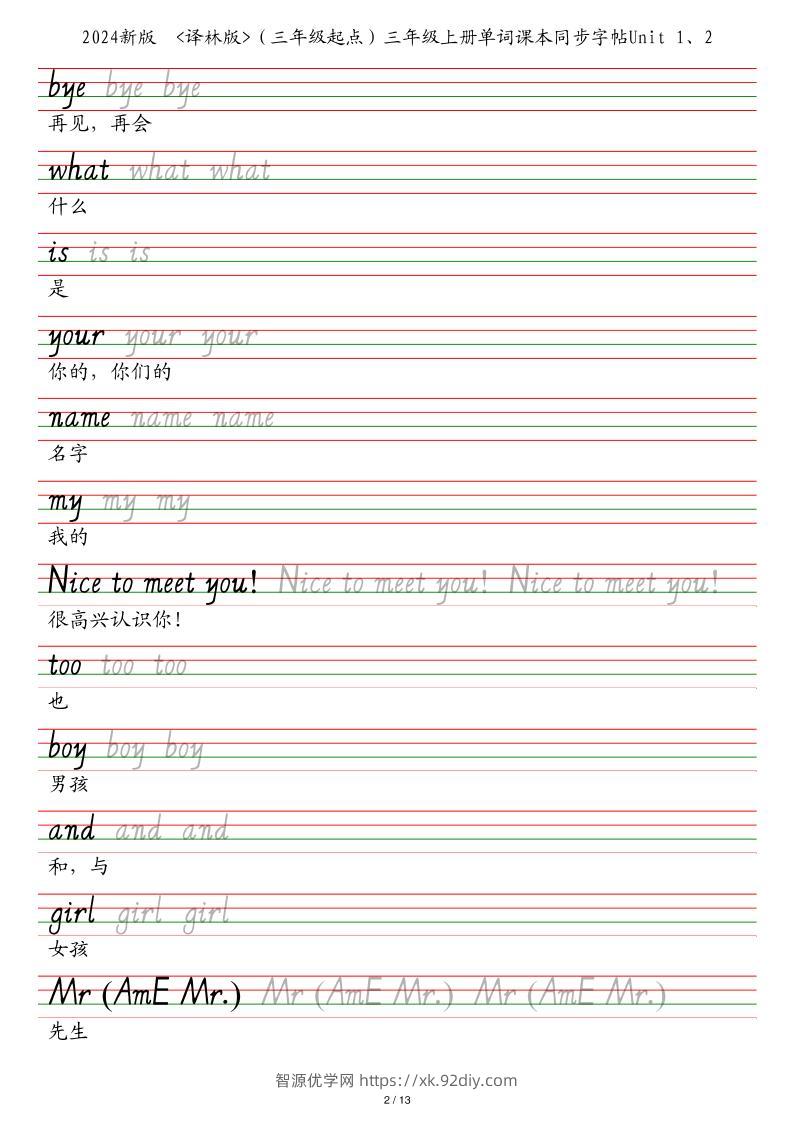 2024新版 <译林版>（三年级起点）三年级上册单词课本同步字帖Unit 1、2
bye bye bye
再见，再会
what what what
什么
is is is
是
your your your
你的，你们的
name name name
名字
my my my
我的
Nice to meet you! Nice to meet you! Nice to meet you!
很高兴认识你！
too too too
也
boy boy boy
男孩
and and and
和，与
girl girl girl
女孩
Mr (AmE Mr.) Mr (AmE Mr.) Mr (AmE Mr.)
先生
智源优学网 https://xk.92diy.com
2 / 13